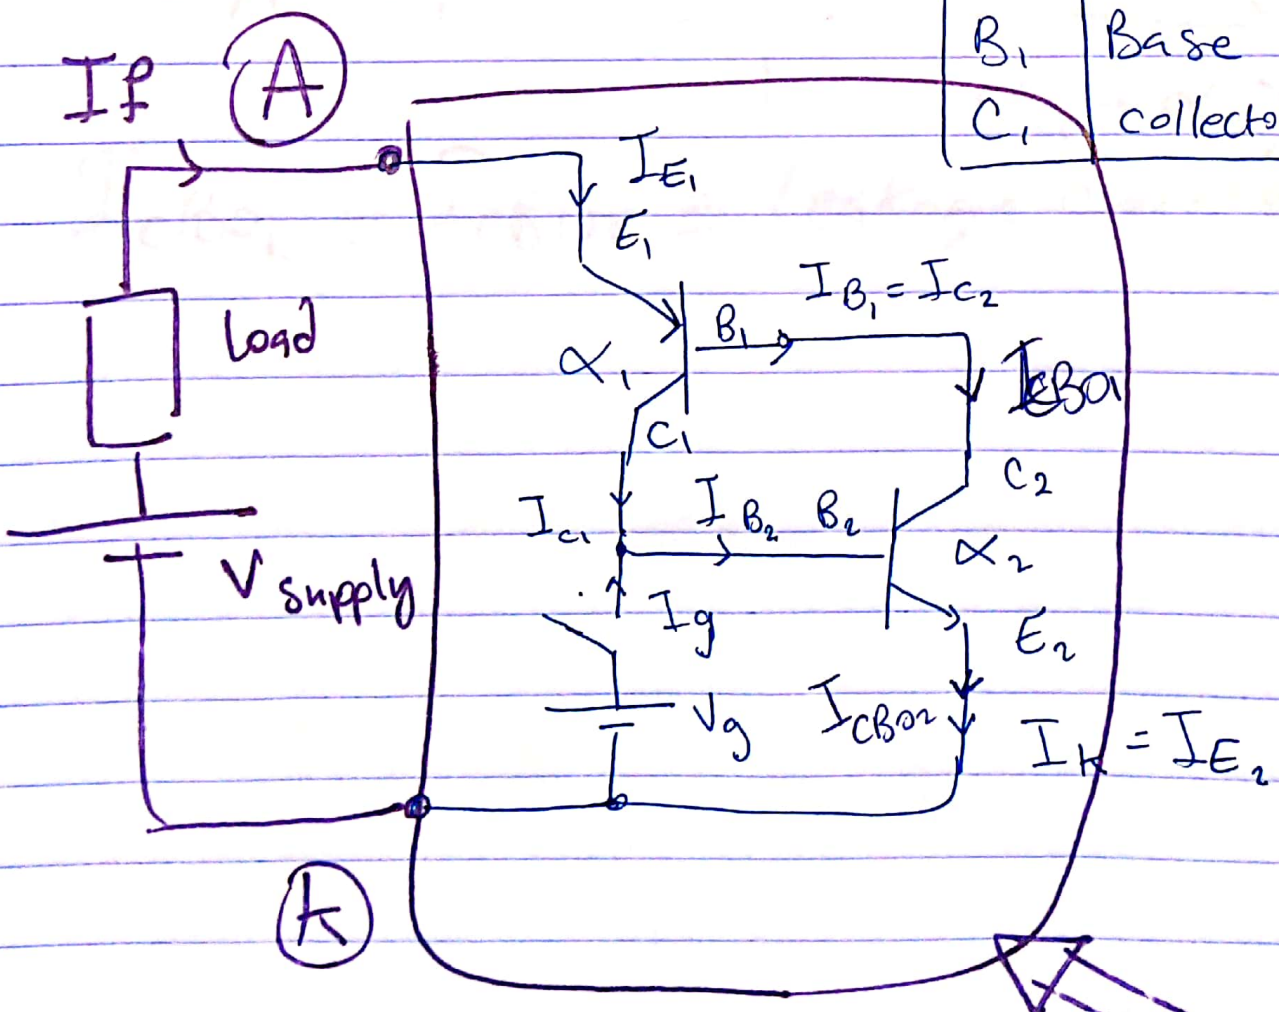 B₁ Base
C₁ collecto
If
A
I_E₁
E₁
I_B₁ = I_C₂
B₁
α₁
Load
I_CBO1
C₁
C₂
I_C₁
I_B₂ B₂
α₂
V supply
Ig
E₂
Vg
I_CBO2
I_k = I_E₂
k